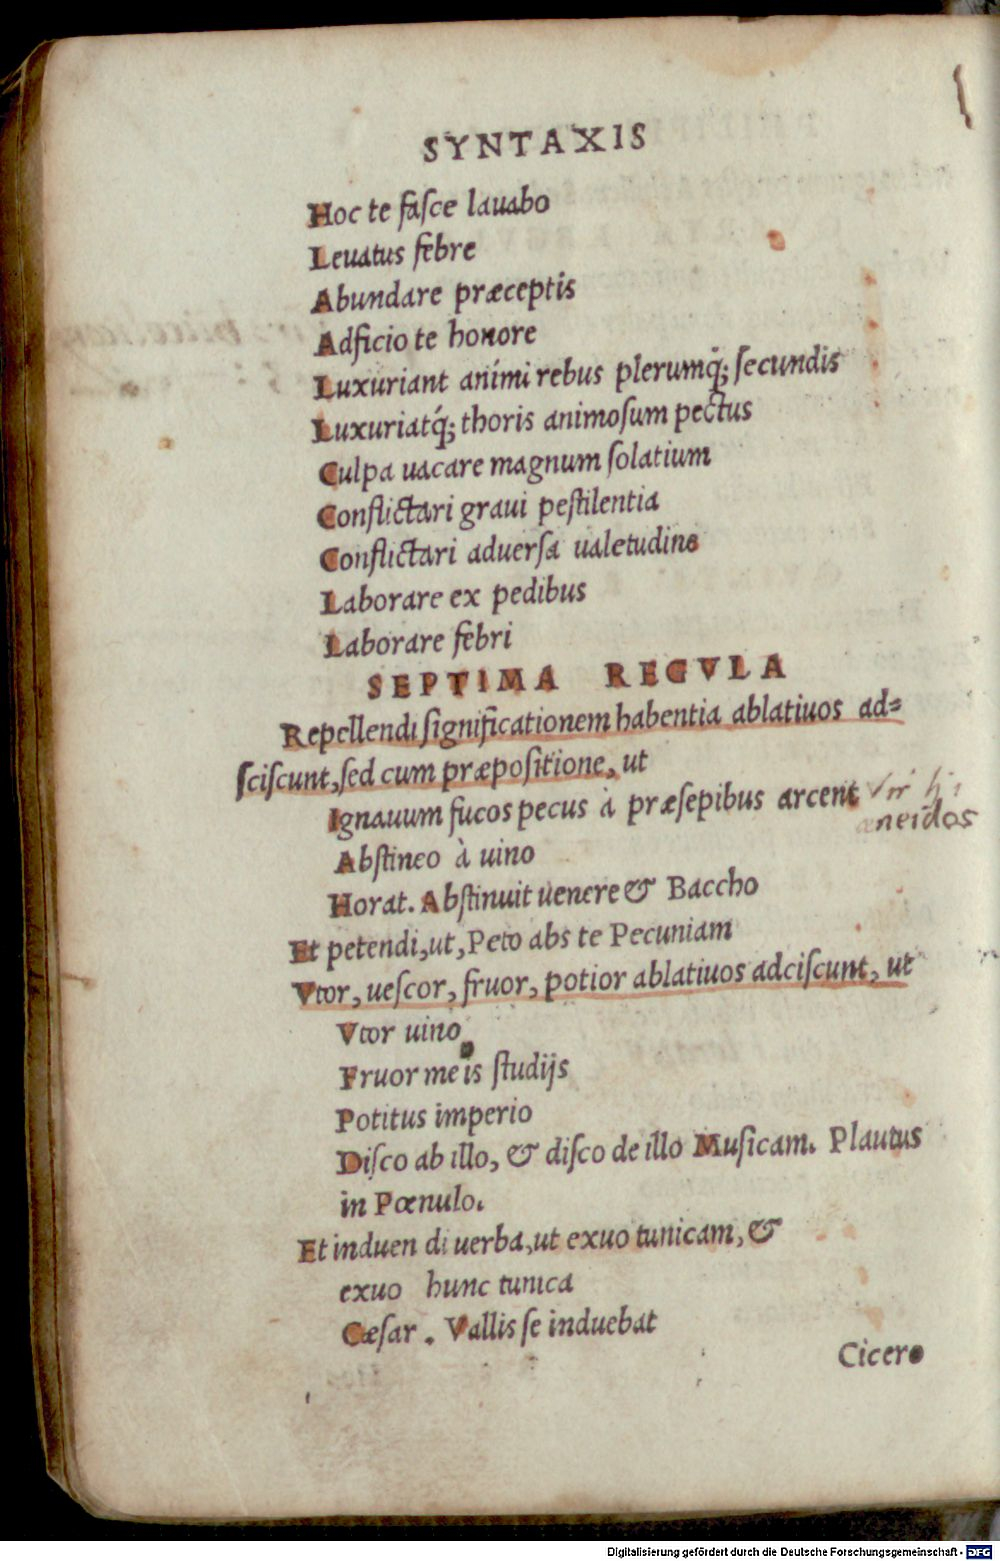 SYNTAXIS
Hoc te faſce lauabo
Leuatus febre
Abundare præceptis
Adficio te honore
Luxuriant animi rebus plerumq́; ſecundis
Luxuriatq́; thoris animoſum pectus
Culpa uacare magnum ſolatium
Conflictari graui peſtilentia
Conflictari aduerſa ualetudine
Laborare ex pedibus
Laborare febri
SEPTIMA REGVLA
Repellendi ſignificationem habentia ablatiuos ad=
ſciſcunt, ſed cum præpoſitione, ut
Ignauum fucos pecus à præſepibus arcent
æneidos
Abſtineo à uino
Horat. Abſtinuit uenere & Baccho
Et petendi, ut, Peto abs te Pecuniam
Vtor, ueſcor, fruor, potior ablatiuos adciſcunt, ut
Vtor uino
Fruor meis ſtudijs
Potitus imperio
Diſco ab illo, & diſco de illo Muſicam. Plautus
in Pœnulo.
Et induendi uerba, ut exuo tunicam, &
exuo hunc tunica
Cæſar. Vallis ſe induebat
Cicero
Digitalisierung gefördert durch die Deutsche Forschungsgemeinschaft - DFG